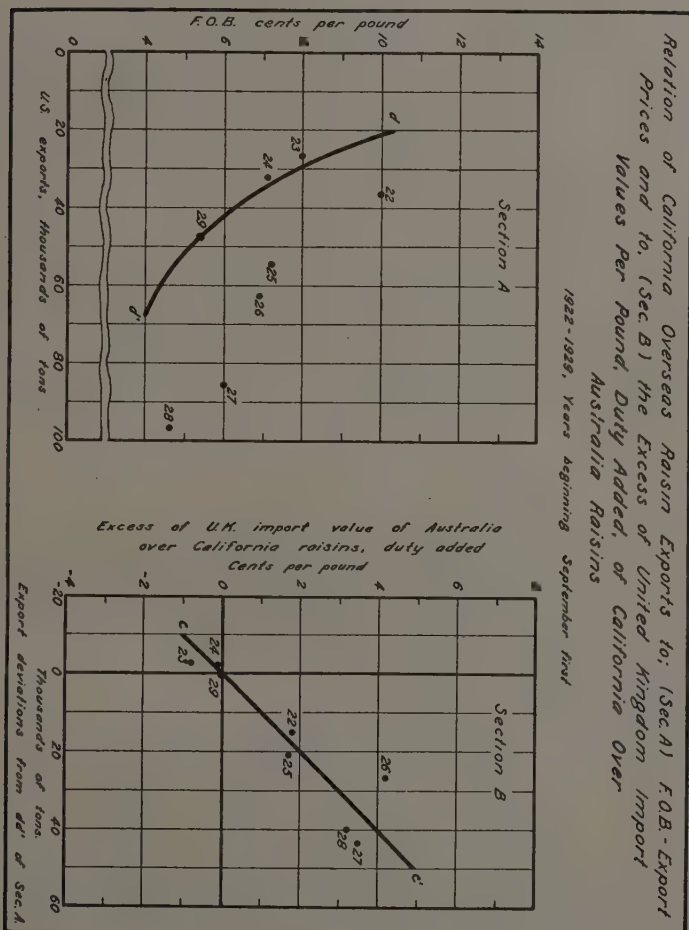 Relation of California Overseas Raisin Exports to; (Sec. A) F.O.B.-Export
Prices and to, (Sec. B) the Excess of United Kingdom Import
Values Per Pound, Duty Added, of California Over
Australia Raisins
1922-1929, Years beginning September first
Section A
F.O.B. cents per pound
14
12
10
8
6
4
0
d
22
23
24
29
25
26
27
28
d'
0 20 40 60 80 100
U.S. exports, thousands of tons
Section B
Excess of U.K. import value of Australia
over California raisins, duty added
Cents per pound
6
4
2
0
-2
-4
c
24
23
29
22
25
26
28
27
c'
-20 0 20 40 60
Thousands of tons.
Export deviations from dd' of Sec. A.